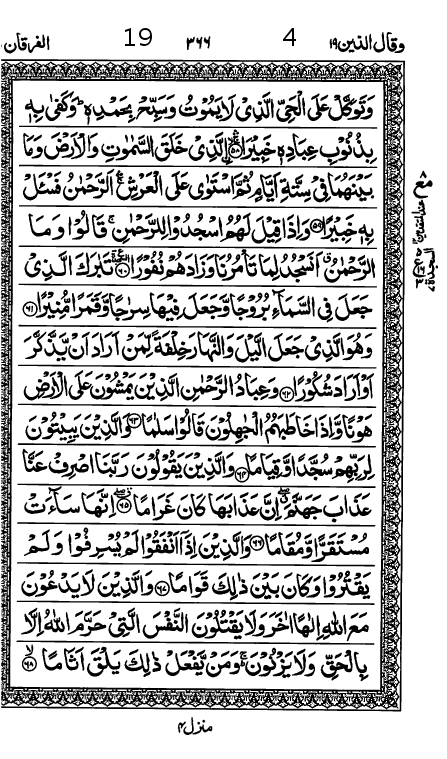 وقال الذین ۱۹ 4 ۳۶۶ 19 الفرقان
وَتَوَكَّلْ عَلَى الْحَيِّ الَّذِیْ لَا یَمُوْتُ وَسَبِّحْ بِحَمْدِهٖ ؕ وَكَفٰی بِهٖ
بِذُنُوْبِ عِبَادِهٖ خَبِیْرَا ۚ ۛ ﴿۵۸﴾ الَّذِیْ خَلَقَ السَّمٰوٰتِ وَالْاَرْضَ وَمَا
بَیْنَهُمَا فِیْ سِتَّةِ اَیَّامٍ ثُمَّ اسْتَوٰی عَلَی الْعَرْشِ ۚ ۛ اَلرَّحْمٰنُ فَسْـَٔلْ
بِهٖ خَبِیْرًا ﴿۵۹﴾ وَاِذَا قِیْلَ لَهُمُ اسْجُدُوْا لِلرَّحْمٰنِ ۚ قَالُوْا وَمَا
الرَّحْمٰنُ ۗ اَنَسْجُدُ لِمَا تَاْمُرُنَا وَزَادَهُمْ نُفُوْرًا ﴿۶۰﴾ تَبٰرَكَ الَّذِیْ
جَعَلَ فِی السَّمَآءِ بُرُوْجًا وَّجَعَلَ فِیْهَا سِرٰجًا وَّقَمَرًا مُّنِیْرًا ﴿۶۱﴾
وَهُوَ الَّذِیْ جَعَلَ الَّیْلَ وَالنَّهَارَ خِلْفَةً لِّمَنْ اَرَادَ اَنْ یَّذَّكَّرَ
اَوْ اَرَادَ شُكُوْرًا ﴿۶۲﴾ وَعِبَادُ الرَّحْمٰنِ الَّذِیْنَ یَمْشُوْنَ عَلَی الْاَرْضِ
هَوْنًا وَّاِذَا خَاطَبَهُمُ الْجٰهِلُوْنَ قَالُوْا سَلٰمًا ﴿۶۳﴾ وَالَّذِیْنَ یَبِیْتُوْنَ
لِرَبِّهِمْ سُجَّدًا وَّقِیَامًا ﴿۶۴﴾ وَالَّذِیْنَ یَقُوْلُوْنَ رَبَّنَا اصْرِفْ عَنَّا
عَذَابَ جَهَنَّمَ ۖ اِنَّ عَذَابَهَا كَانَ غَرَامًا ﴿۶۵﴾ اِنَّهَا سَآءَتْ
مُسْتَقَرًّا وَّمُقَامًا ﴿۶۶﴾ وَالَّذِیْنَ اِذَاۤ اَنْفَقُوْا لَمْ یُسْرِفُوْا وَلَمْ
یَقْتُرُوْا وَكَانَ بَیْنَ ذٰلِكَ قَوَامًا ﴿۶۷﴾ وَالَّذِیْنَ لَا یَدْعُوْنَ
مَعَ اللّٰهِ اِلٰهًا اٰخَرَ وَلَا یَقْتُلُوْنَ النَّفْسَ الَّتِیْ حَرَّمَ اللّٰهُ اِلَّا
بِالْحَقِّ وَلَا یَزْنُوْنَ ۚ وَمَنْ یَّفْعَلْ ذٰلِكَ یَلْقَ اَثَامًا ﴿۶۸﴾
منزل ۴